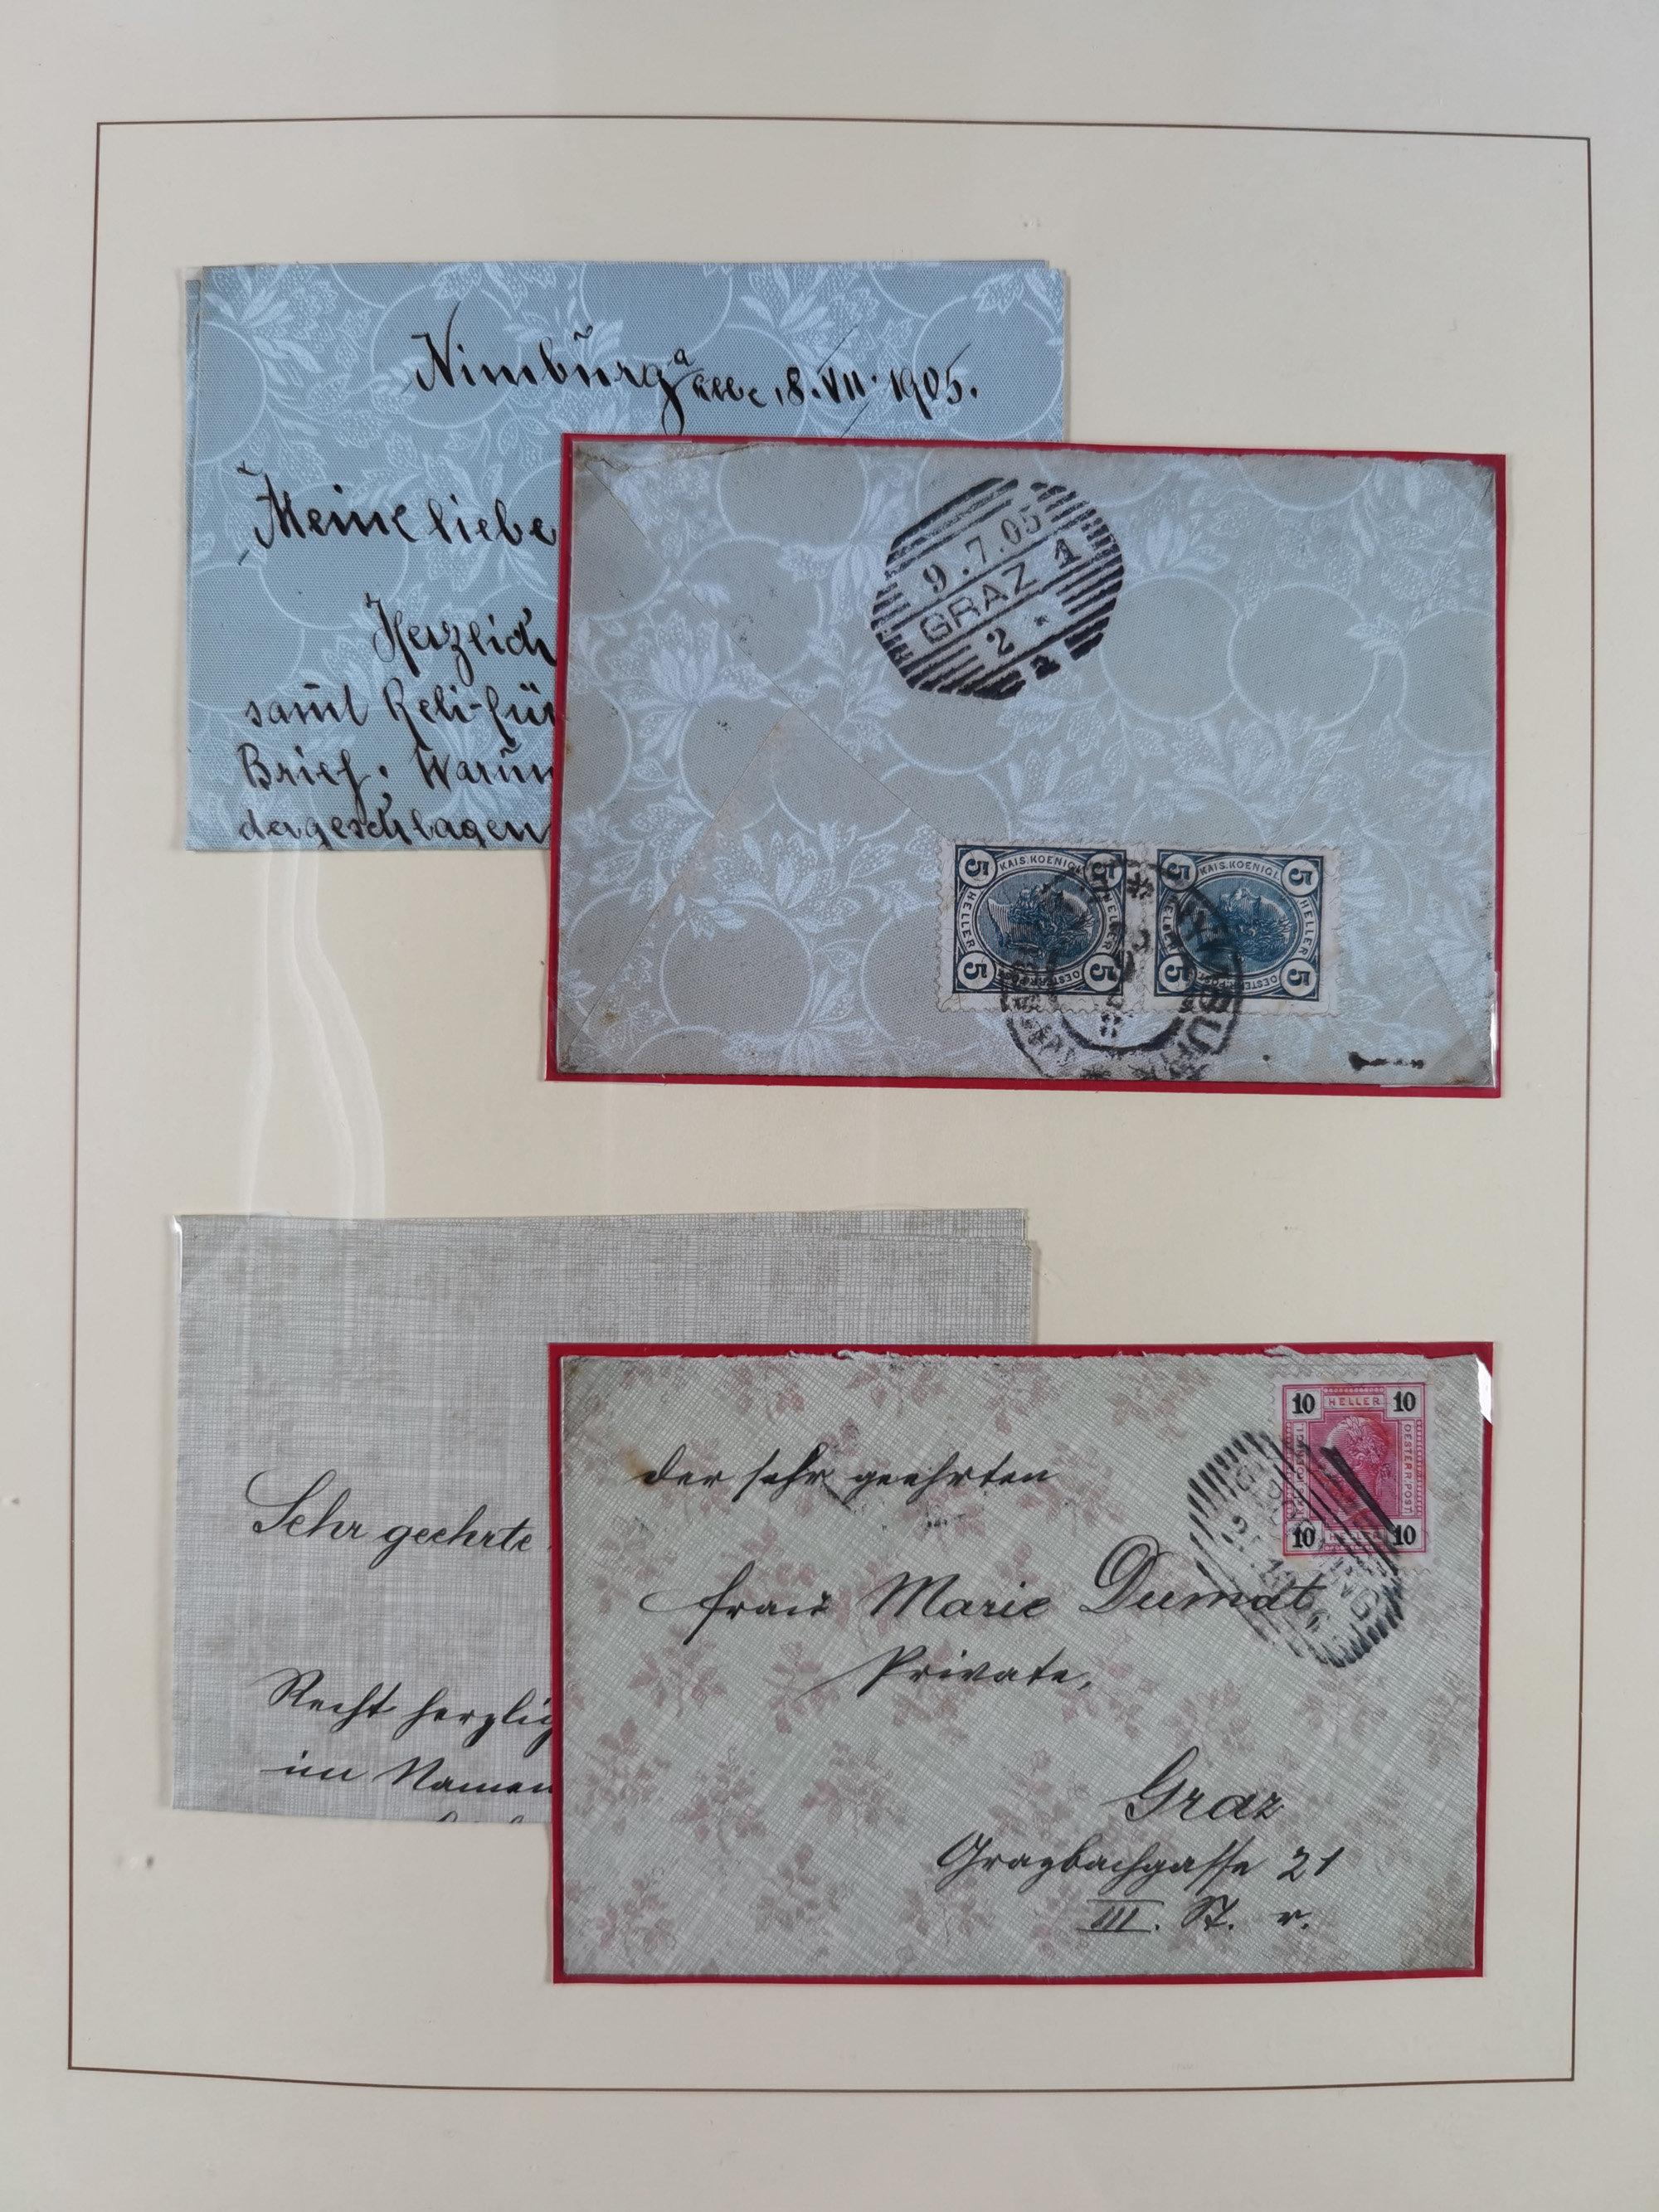 Nimburg a/Elbe, 8. VII. 1905.
Meine liebe
Herzlich
samt Reli für
Brief. Warum
dergeschlagen
9.7.05
GRAZ 1
2 *
5 KAIS.KOENIGL. 5
HELLER HELLER
5 OESTERR.POST 5
5 KAIS.KOENIGL. 5
HELLER HELLER
5 OESTERR.POST 5
Sehr geehrte
Recht herzlich
im Namen
10 HELLER 10
OESTERR.POST
10 HELLER 10
der sehr geehrten
Frau Marie Dumat,
Private,
Graz
Grazbachgasse 21
III. St. r.